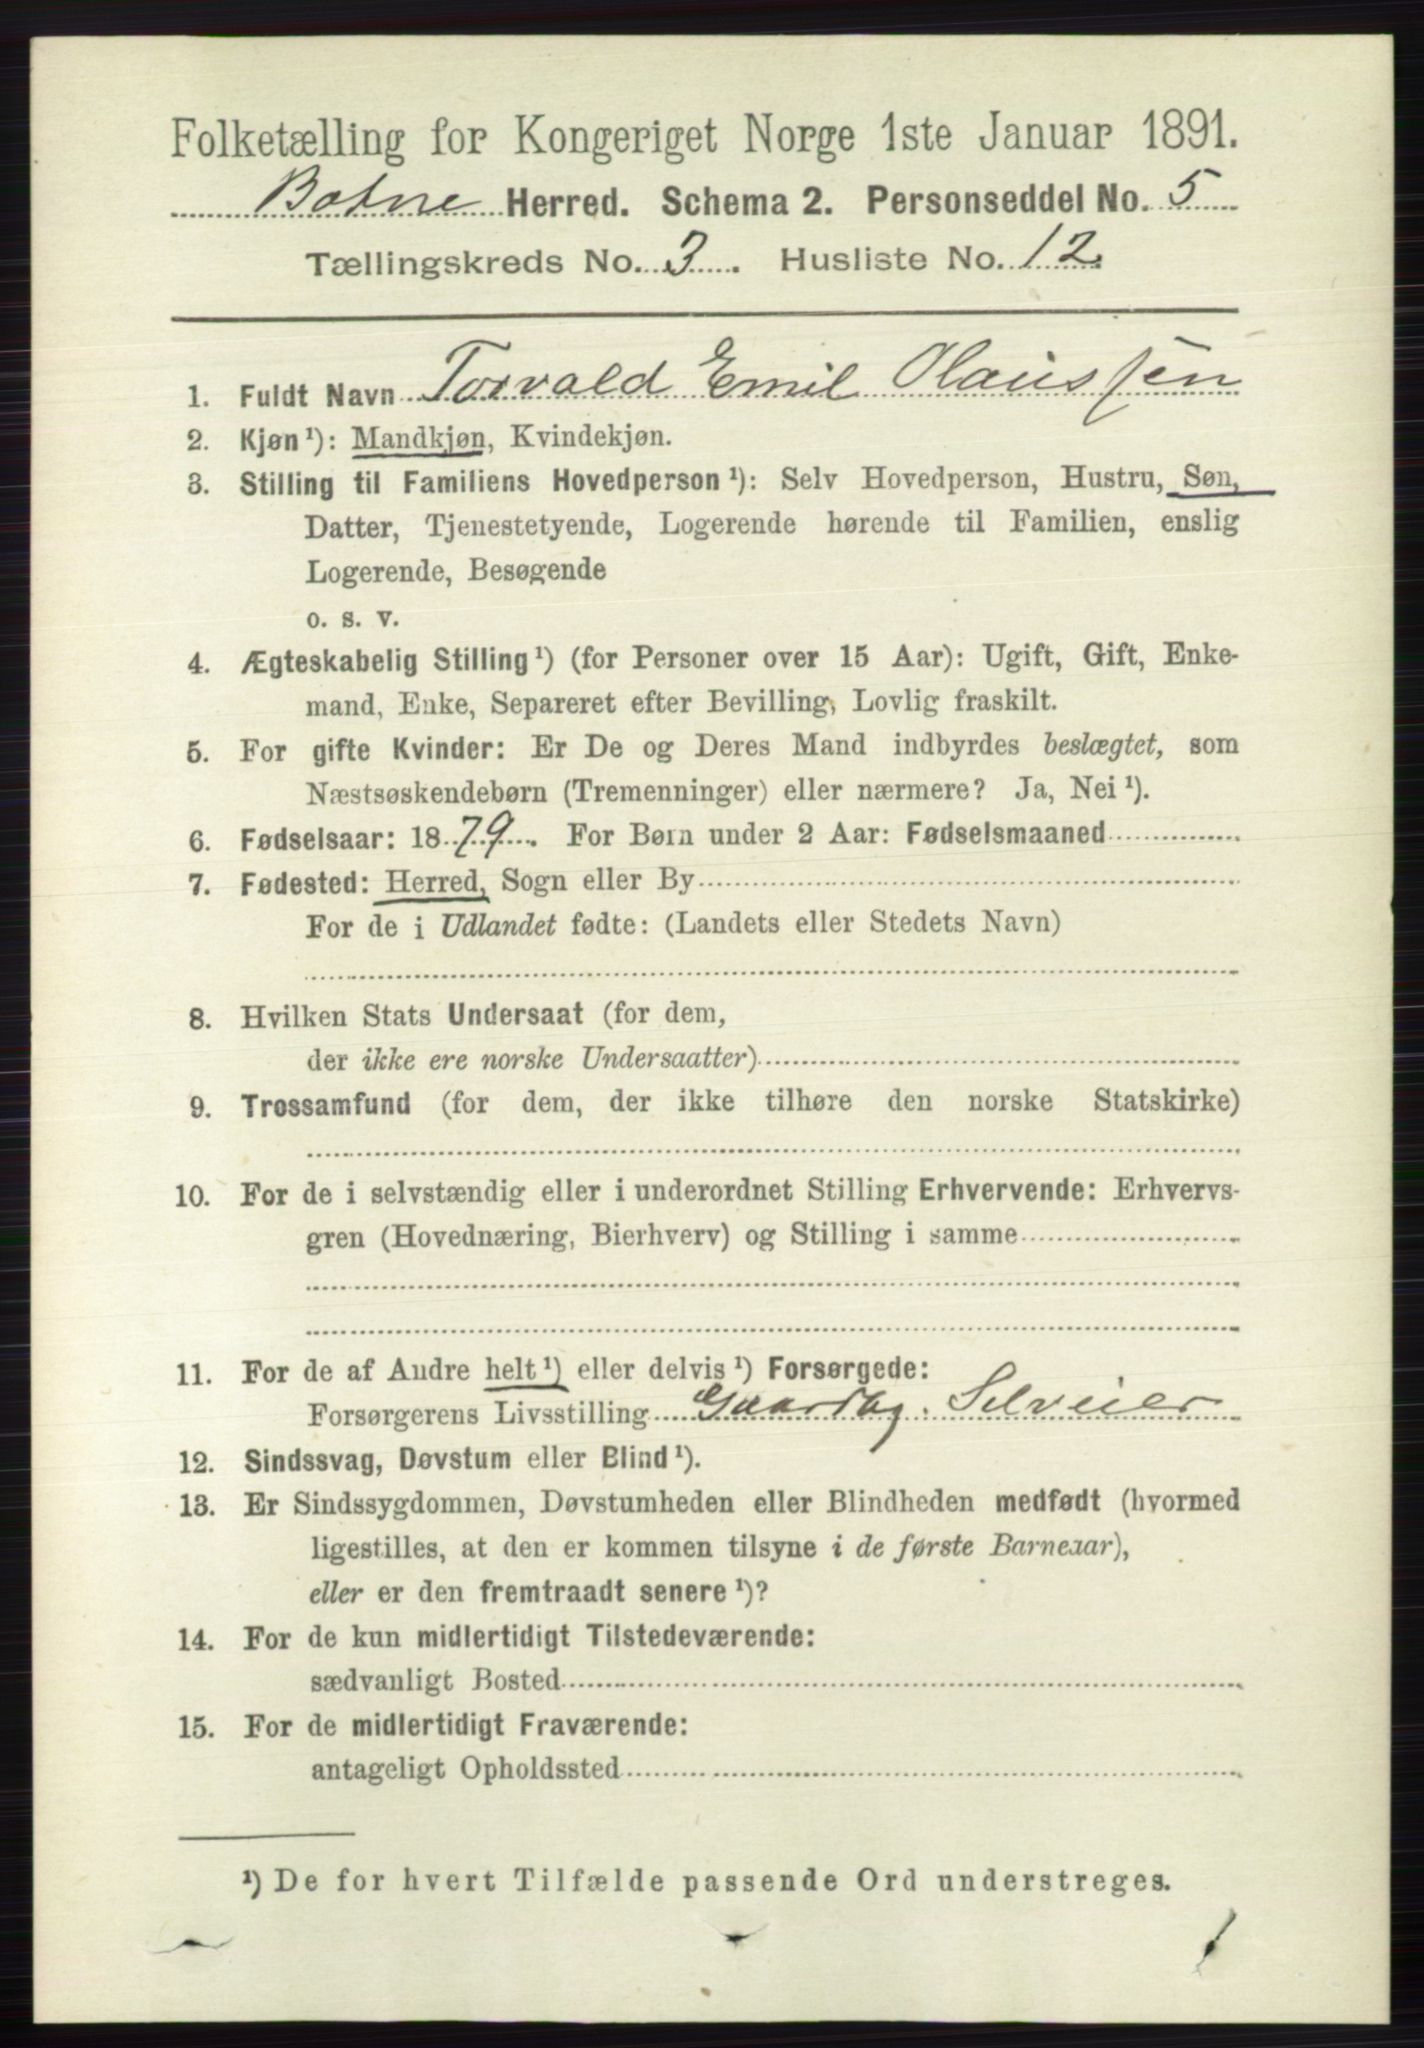 Folketælling for Kongeriget Norge 1ste Januar 1891.
Botne Herred. Schema 2. Personseddel No. 5
Tællingskreds No. 3. Husliste No. 12.
1. Fuldt Navn Torvald Emil Olaussen
2. Kjøn¹): Mandkjøn, Kvindekjøn.
3. Stilling til Familiens Hovedperson¹): Selv Hovedperson, Hustru, Søn,
Datter, Tjenestetyende, Logerende hørende til Familien, enslig
Logerende, Besøgende
o. s. v.
4. Ægteskabelig Stilling¹) (for Personer over 15 Aar): Ugift, Gift, Enke-
mand, Enke, Separeret efter Bevilling, Lovlig fraskilt.
5. For gifte Kvinder: Er De og Deres Mand indbyrdes beslægtet, som
Næstsøskendebørn (Tremenninger) eller nærmere? Ja, Nei¹).
6. Fødselsaar: 1879. For Børn under 2 Aar: Fødselsmaaned
7. Fødested: Herred, Sogn eller By
For de i Udlandet fødte: (Landets eller Stedets Navn)
8. Hvilken Stats Undersaat (for dem,
der ikke ere norske Undersaatter)
9. Trossamfund (for dem, der ikke tilhøre den norske Statskirke)
10. For de i selvstændig eller i underordnet Stilling Erhvervende: Erhvervs-
gren (Hovednæring, Bierhverv) og Stilling i samme
11. For de af Andre helt¹) eller delvis¹) Forsørgede:
Forsørgerens Livsstilling Gaardbg. Selveier
12. Sindssvag, Døvstum eller Blind¹).
13. Er Sindssygdommen, Døvstumheden eller Blindheden medfødt (hvormed
ligestilles, at den er kommen tilsyne i de første Barneaar),
eller er den fremtraadt senere¹)?
14. For de kun midlertidigt Tilstedeværende:
sædvanligt Bosted
15. For de midlertidigt Fraværende:
antageligt Opholdssted
¹) De for hvert Tilfælde passende Ord understreges.